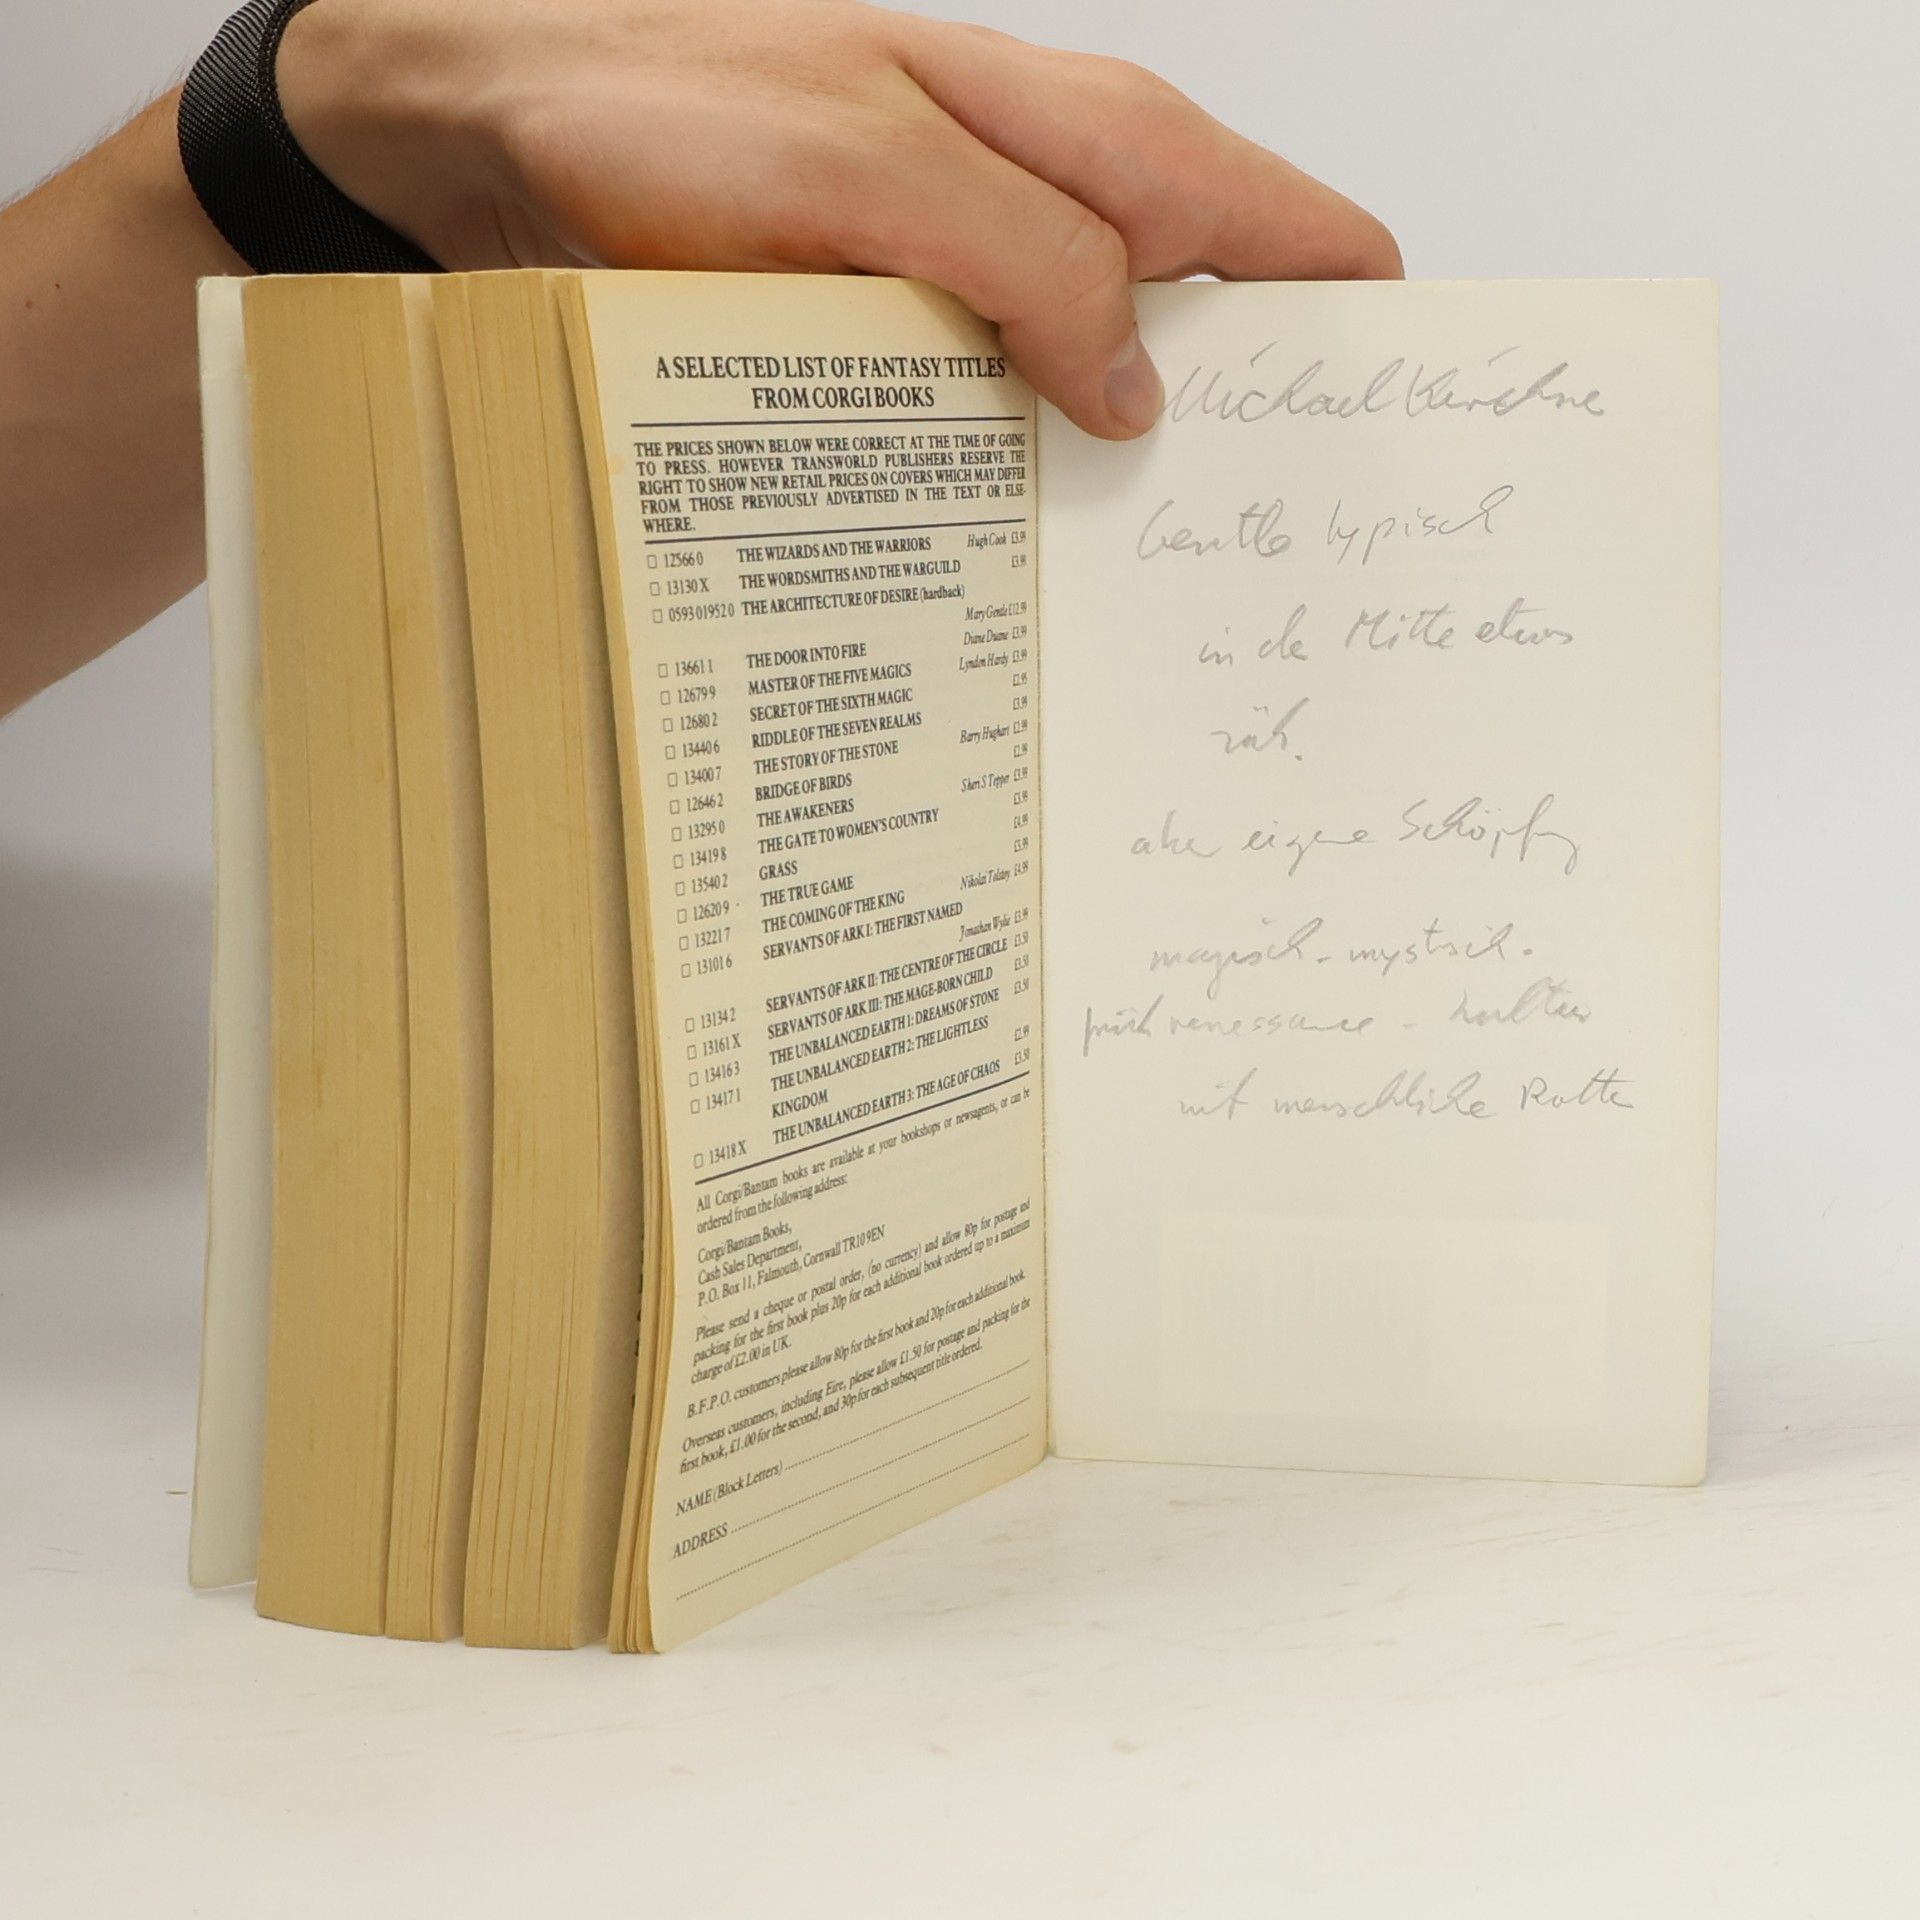 A SELECTED LIST OF FANTASY TITLES
FROM CORGI BOOKS
THE PRICES SHOWN BELOW WERE CORRECT AT THE TIME OF GOING
TO PRESS. HOWEVER TRANSWORLD PUBLISHERS RESERVE THE
RIGHT TO SHOW NEW RETAIL PRICES ON COVERS WHICH MAY DIFFER
FROM THOSE PREVIOUSLY ADVERTISED IN THE TEXT OR ELSE-
WHERE.
12566 0 THE WIZARDS AND THE WARRIORS Hugh Cook £3.99
13130 X THE WORDSMITHS AND THE WARGUILD £3.99
0593 019520 THE ARCHITECTURE OF DESIRE (hardback)
Mary Gentle £12.99
13661 1 THE DOOR INTO FIRE Diane Duane £3.99
12679 9 MASTER OF THE FIVE MAGICS Lyndon Hardy £3.99
12680 2 SECRET OF THE SIXTH MAGIC
13440 6 RIDDLE OF THE SEVEN REALMS £3.99
13400 7 THE STORY OF THE STONE Barry Hughart £2.99
12646 2 BRIDGE OF BIRDS £2.99
13295 0 THE AWAKENERS Sheri S Tepper £3.99
13419 8 THE GATE TO WOMEN'S COUNTRY £3.99
13540 2 GRASS £4.99
12620 9 THE TRUE GAME £3.99
13221 7 THE COMING OF THE KING Nikolai Tolstoy £4.99
13101 6 SERVANTS OF ARK I: THE FIRST NAMED
Jonathan Wylie £3.99
13134 2 SERVANTS OF ARK II: THE CENTRE OF THE CIRCLE £3.50
13161 X SERVANTS OF ARK III: THE MAGE-BORN CHILD £3.50
13416 3 THE UNBALANCED EARTH 1: DREAMS OF STONE £3.50
13417 1 THE UNBALANCED EARTH 2: THE LIGHTLESS
KINGDOM £2.99
13418 X THE UNBALANCED EARTH 3: THE AGE OF CHAOS £3.50
All Corgi/Bantam books are available at your bookshops or newsagents, or can be
ordered from the following address:
Corgi/Bantam Books,
Cash Sales Department,
P.O. Box 11, Falmouth, Cornwall TR10 9EN
Please send a cheque or postal order, (no currency) and allow 80p for postage and
packing for the first book plus 20p for each additional book ordered up to a maximum
charge of £2.00 in UK.
B.F.P.O. customers please allow 80p for the first book and 20p for each additional book.
Overseas customers, including Eire, please allow £1.50 for postage and packing for the
first book, £1.00 for the second, and 30p for each subsequent title ordered.
NAME (Block Letters)
ADDRESS
Michael
Gentle typisch
in de Mitte etwas
zäh.
aber eigene Schöpfung
magisch - mystisch -
mit menschliche Ratten